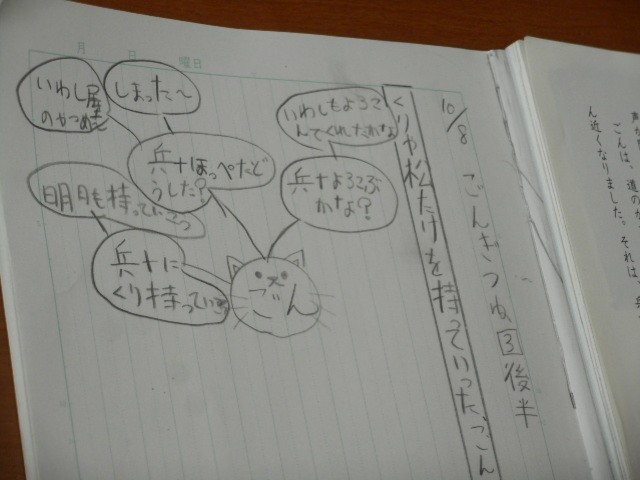 月 日 曜日
10/8 ごんぎつね 3 後半
くりや松たけを持っていったごん
いわしもよろこ
んでくれたかな
兵十よろこぶ
かな?
兵十ほっぺたど
うした?
しまった～
いわし屋
のやつめ
兵十に
くり持っていこう
明日も持っていこう
ごん
ごんは、道の
ん近くなりました。それは、